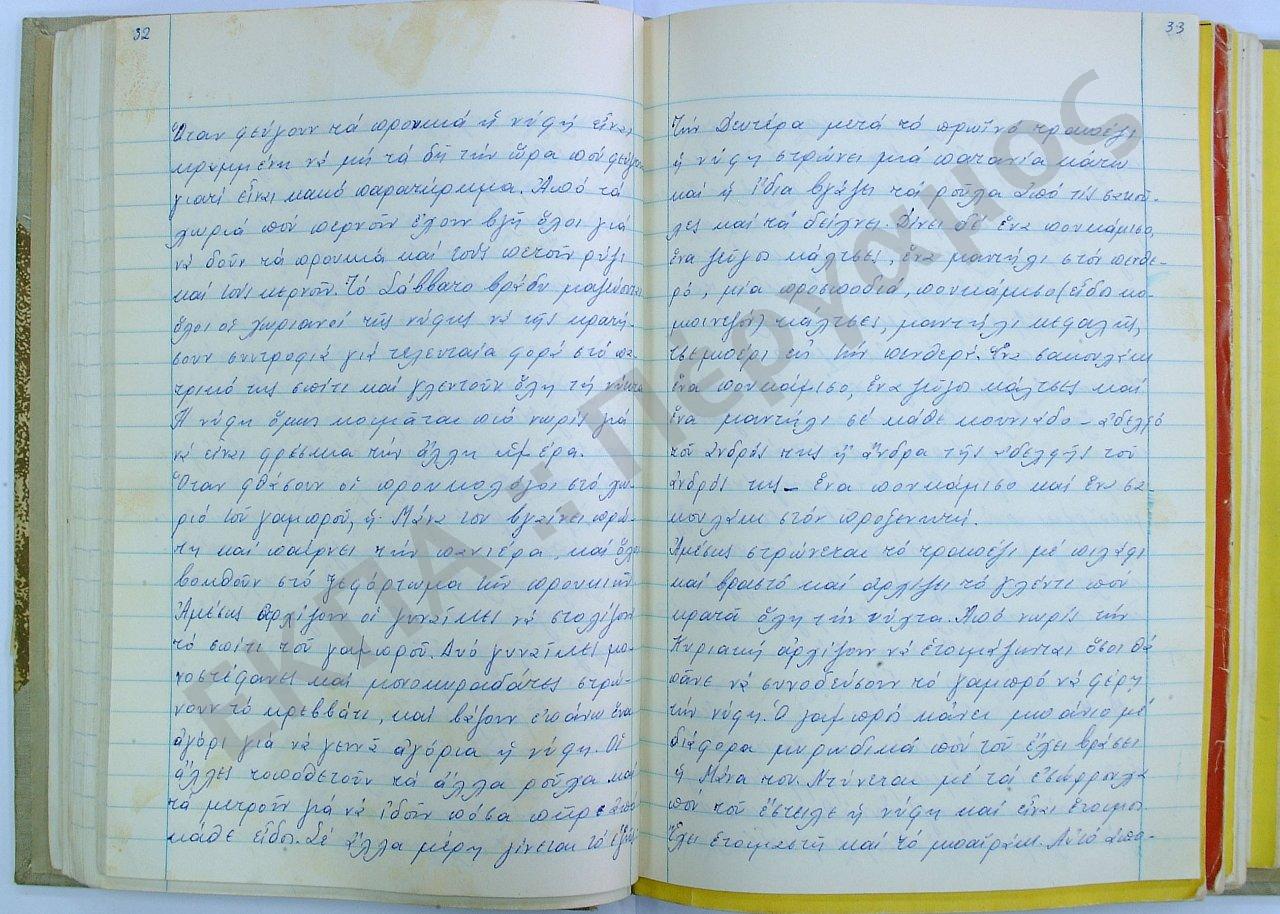 32
Ὅταν φεύγουν τά προικιά ἡ νύφη εἶναι
κρυμμένη νά μή τά δῆ τήν ὥρα πού φεύγουν
γιατί εἶναι κακό παρατήρημα. Ἀπό τά
χωριά πού περνοῦν ἔχουν βγῆ ὅλοι γιά
νά δοῦν τά προικιά καί τούς πετοῦν ρύζι
καί τούς κερνοῦν. Τό Σάββατο βράδυ μαζεύονται
ὅλοι οἱ χωριανοί τῆς νύφης νά τῆς κρατή-
σουν συντροφιά γιά τελευταία φορά στό πα-
τρικό της σπίτι καί γλεντοῦν ὅλη τή νύκτα
Ἡ νύφη ὅμως κοιμᾶται πιό νωρίς γιά
νά εἶναι φρέσκια τήν ἄλλη ἡμέρα.
Ὅταν φθάσουν οἱ προικολόγοι στό χω-
ριό τοῦ γαμπροῦ, ἡ Μάνα του βγαίνει πρώ-
τη καί παίρνει τήν πανιέρα, καί ὅλοι
βοηθοῦν στό ξεφόρτωμα τῶν προικιῶν
Ἀμέσως ἀρχίζουν οἱ γυναῖκες νά στολίζουν
τό σπίτι τοῦ γαμπροῦ. Δυό γυναῖκες μο-
νοστέφανες καί μονοκυραδάτες στρώ-
νουν τό κρεββάτι, καί βάζουν ἐπάνω ἕνα
ἀγόρι γιά νά γεννᾶ ἀγόρια ἡ νύφη. Οἱ
ἄλλες τοποθετοῦν τά ἄλλα ροῦχα καί
τά μετροῦν γιά νά ἰδοῦν πόσα πῆρε ἀπό
κάθε εἶδος. Σέ ἄλλα μέρη γίνεται τό ἑξῆς
33
Τήν Δευτέρα μετά τό πρωϊνό τραπέζι
ἡ νύφη στρώνει μιά πατανία κάτω
καί ἡ ἴδια βγάζει τά ροῦχα ἀπό τίς σακοῦ-
λες καί τά δείχνει. Δίνει δέ ἕνα πουκάμισο,
ἕνα ζεῦγος κάλτσες, ἕνα μαντήλι στόν πεθε-
ρό, μία προσποδιά, πουκάμισο (εἶδος κο-
μπινεζόν) κάλτσες, μαντήλι κεφαλῆς,
τσεμπέρι εἰς τήν πενθερά. Ἕνα σακουλάκι
ἕνα πουκάμισο, ἕνα ζεῦγος κάλτσες καί
ἕνα μαντήλι σέ κάθε κουνιάδο - ἀδελφό
τοῦ ἀνδρός της ἤ ἄνδρα τῆς ἀδελφῆς τοῦ
ἀνδρός της - ἕνα πουκάμισο καί ἕνα σα-
κουλάκι στόν προξενητή.
Ἀμέσως στρώνεται τό τραπέζι μέ πιλάφι
καί βραστό καί ἀρχίζει τό γλέντι πού
κρατᾶ ὅλη τήν νύχτα. Ἀπό νωρίς τήν
Κυριακή ἀρχίζουν νά ἑτοιμάζωνται ὅσοι θά
πᾶνε νά συνοδεύσουν τό γαμπρό νά φέρη
τήν νύφη. Ὁ γαμπρός κάνει μπάνιο μέ
διάφορα μυρωδικά πού τοῦ ἔχει βράσει
ἡ Μάνα του. Ντύνεται μέ τά ἐσώρρουχα
πού τοῦ ἔστειλε ἡ νύφη καί εἶναι ἕτοιμος
Ἔχει ἑτοιμαστῆ καί τό μπαϊράκι. Αὐτό ἀπο-
ΕΚΠΑ :: Πέργαμος